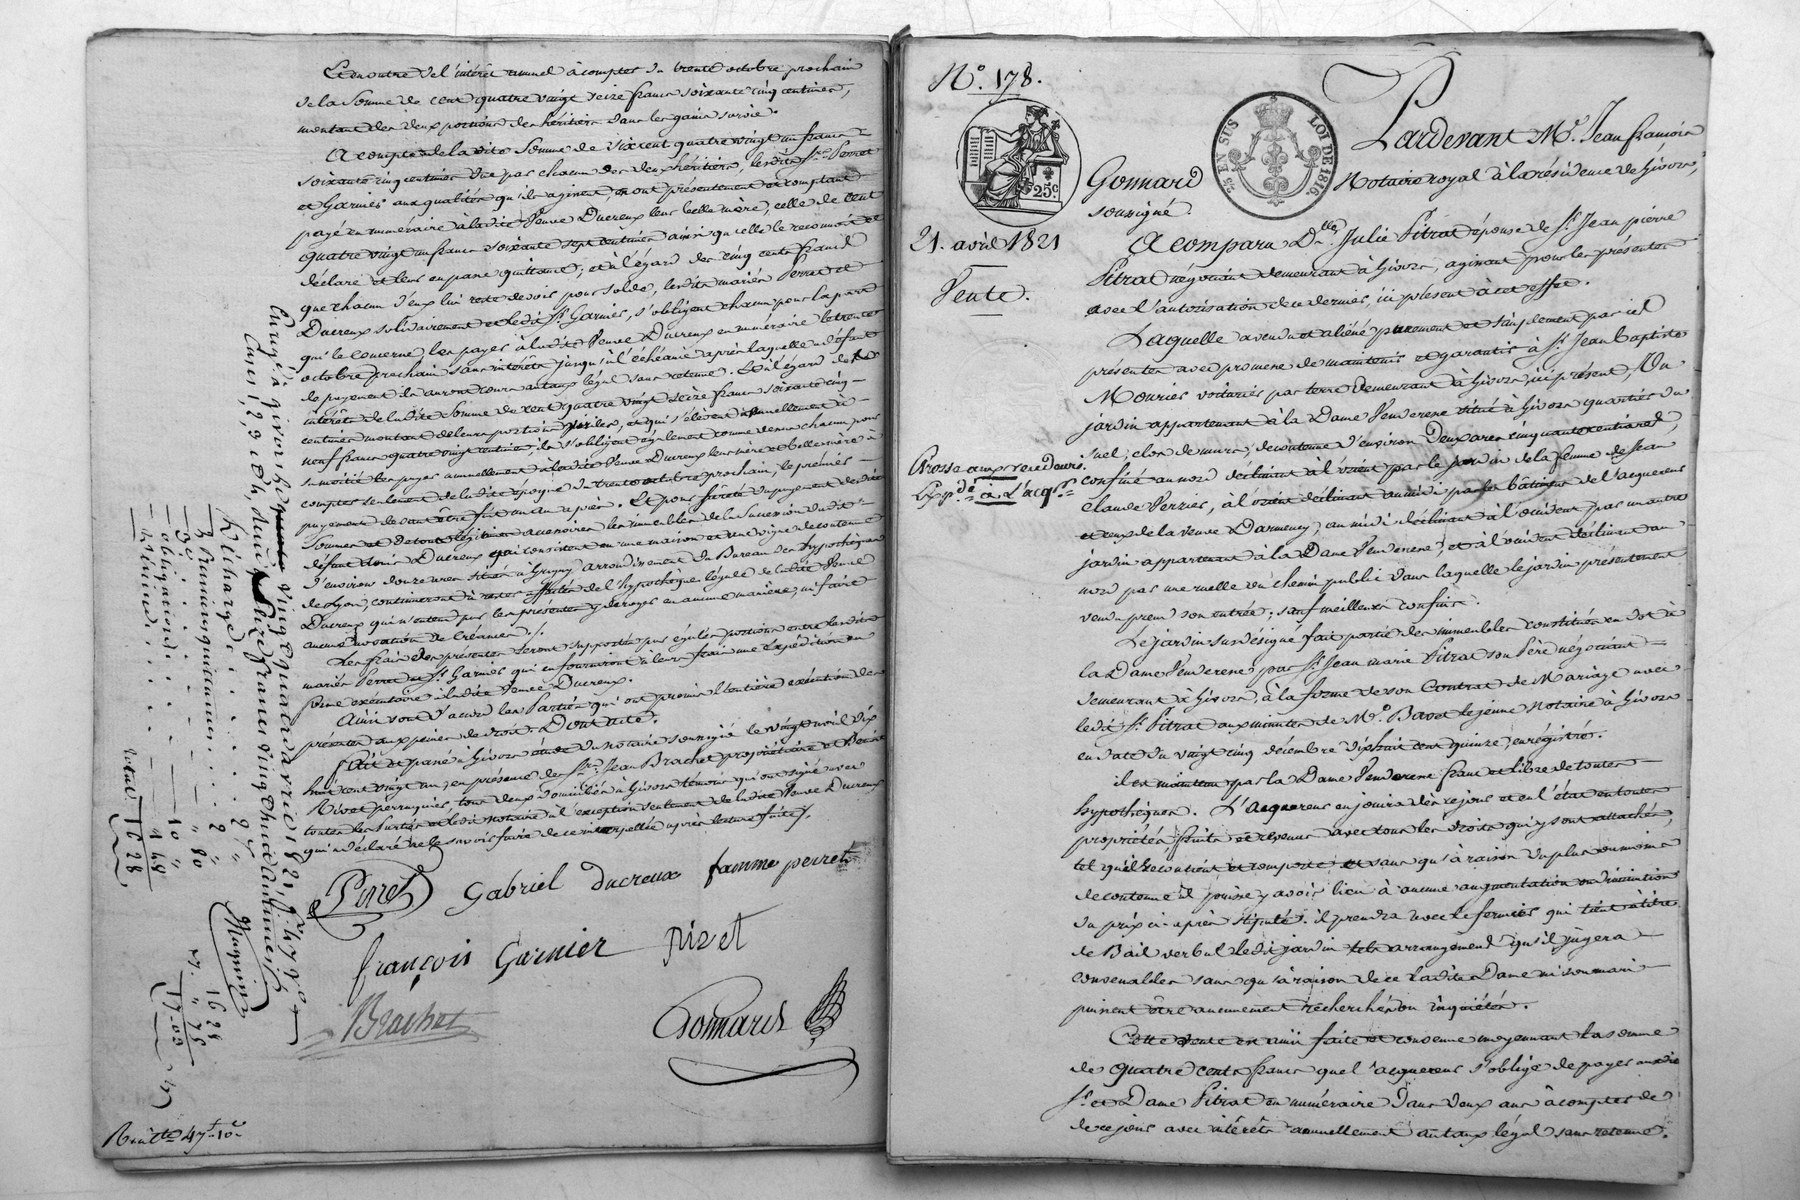 Et en outre de l'intérêt annuel à compter du trente octobre prochain
de la somme de cent quatre vingt seize francs soixante cinq centimes,
montant des deux portions des héritiers dans les gains survie.
A compte de la dite somme de six cent quatre vingt un francs
soixante cinq centimes due par chacun des deux héritiers, lesdits Srs Perret
et Garnier aux qualités qu'ils agissent, ont présentement et comptant
payé en numéraire à ladite Veuve Ducreux leur belle mère, celle de cent
quatre vingt un francs soixante sept centimes ainsi qu'elle le reconnoit et
déclare et leur en passe quittance; et à l'égard des cinq cents francs
que chacun d'eux lui reste devoir pour solde, lesdits mariés Perret et
Ducreux solidairement et ledit Sr Garnier, s'obligent chacun pour la part
qui le concerne, les payer à ladite Veuve Ducreux en numéraire le trente
octobre prochain sans intérêts jusqu'à l'échéance après laquelle à défaut
de payement ils auront cours au taux légal sans retenue. Et à l'égard des
intérêts de ladite somme de cent quatre vingt seize francs soixante cinq
centimes montant de leurs portions et qui s'élèvent annuellement à
neuf francs quatre vingt centimes, ils s'obligent également comme dessus chacun pour
sa moitié les payer annuellement à ladite Veuve Ducreux leur mère et belle mère à
compter seulement de ladite époque du trente octobre prochain, le premier
payement devant être fait un an après. Et pour sûreté du payement desdites
sommes et de tous légitimes accessoires les immeubles de la succession dudit
défunt Ducreux qui consistent en une maison et une vigne de contenue
d'environ douze ares situés à Grigny arrondissement du Bureau des hypothèques
de Lyon, continueront à rester affectés de l'hypothèque légale de ladite Veuve
Ducreux qui n'entend par les présentes y déroger en aucune manière, ni faire
aucune novation de créance./.
Les frais des présentes seront supportés par égales portions entre lesdits
mariés Perret et Sr Garnier qui en fourniront à leurs frais une expédition en
forme exécutoire à ladite Veuve Ducreux.
Ainsi sont d'accord les Parties qui ont promis l'entière exécution des
présentes aux peines de droit. Dont acte.
Fait et passé à Givors étude du Notaire soussigné le vingt avril dix
huit cent vingt un, en présence de Srs Jean Brachet propriétaire et
Rivet perruquier, tous deux domiciliés à Givors témoins qui ont signé avec
toutes les Parties et ledit notaire à l'exception seulement de ladite Veuve Ducreux
qui a déclaré ne le savoir faire de ce interpellée après lecture faite./.
Perret Gabriel ducreux famme perret
françois Garnier rivet
Brachet Gonnard
Enregistré à givors le vingt quatre avril 1821, fo 47 Vo
Cases 1, 2, 3 et 4, seize francs vingt huit centimes
Magnin
Décharge
3 Ramingnittances
obligations 10 "
1 48
Total 16 28
16 28
" 75
17 03
Reçu 4 fs 10 c
No. 178.
25 c.
25 EN SUS
LOI DE 1816.
Pardevant Me. Jean françois
Gonnard Notaire royal à la résidence de Givors,
soussigné.
21. avril 1821
Vente.
A comparu Dlle. Julie Pitrat épouse de Sr. Jean pierre
Pitrat négociant demeurant à Givors, agissant pour les présentes
avec l'autorisation de ce dernier, ici présent à cet effet.
Laquelle a vendu et aliéné purement et simplement par ces
présentes avec promesse de maintenir et garantir à Sr. Jean baptiste
Mourier voiturier par terre demeurant à Givors, ici présent, Un
jardin appartenant à la Dame Venderesse situé à Givors quartier du
suel, clos de murs, de contenue d'environ deux ares cinquante centiares,
Grosse aux vendeurs.
Expdé. à l'acqr.
confiné au nord déclinant à l'orient par le jardin de la femme de Jean
Claude Verzier, à l'orient déclinant au midi par les bâtimens de l'acquéreur
et ceux de la veuve Darmency, au midi déclinant à l'occident par un autre
jardin appartenant à la Dame Venderesse, et à l'occident déclinant au
nord par une ruelle ou chemin public dans laquelle le jardin présentement
vendu prend son entrée; sauf meilleurs confins.
Le jardin susdésigné fait partie des immeubles constitués en dot à
la Dame Venderesse par Sr. Jean marie Pitrat son Père négociant
demeurant à Givors, à la forme de son Contrat de Mariage avec
ledit Sr. Pitrat aux minutes de Me. Bavet le jeune Notaire à Givors
en date du vingt cinq décembre dix huit cent quinze, enregistré.
il est maintenu par la Dame Venderesse franc et libre de toutes
hypothèques. L'acquéreur en jouira dès ce jour et en l'état en toutes
propriétés fruits et revenus avec tous les droits qui y sont attachés,
tel qu'il se contient et comporte, et sans qu'à raison du plus ou moins
de contenue il puisse y avoir lieu à aucune augmentation ou diminution
du prix ci-après stipulé. il prendra avec le fermier qui tient à titre
de Bail verbal ledit jardin tels arrangemens qu'il jugera
convenables sans qu'à raison de ce ladite Dame ni son mari
puissent être aucunement recherchés ou inquiétés.
Cette vente est ainsi faite et consentie moyennant la somme
de quatre cents francs que l'acquéreur s'oblige de payer auxdits
Sr. et Dame Pitrat en numéraire dans deux ans à compter de
ce jour avec intérêts annuellement au taux légal sans retenue.